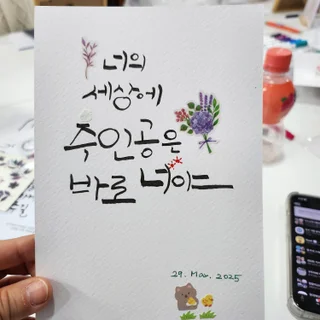 너의
세상에
주인공은
바로 너야
29. Mar. 2025